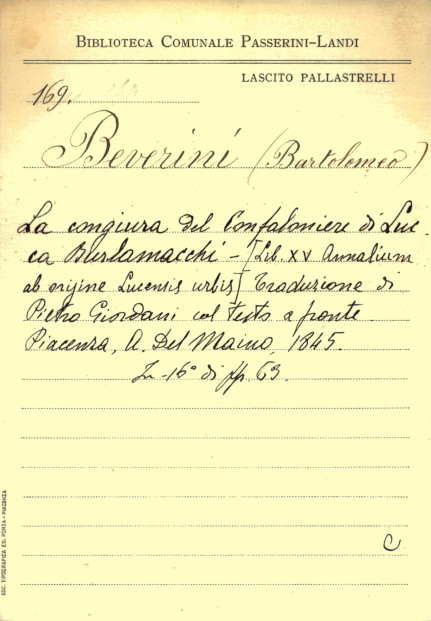 BIBLIOTECA COMUNALE PASSERINI-LANDI
LASCITO PALLASTRELLI
169.
Beverini (Bartolomeo)
La congiura del Confaloniere di Luc-
ca Burlamacchi - [Lib. XV Annalium
ab origine Lucensis urbis] Traduzione di
Pietro Giordani col testo a fronte.
Piacenza, A. Del Maino, 1845.
In-16° di pp. 63.
C
SOC. TIPOGRAFICA ED. PORTA - PIACENZA